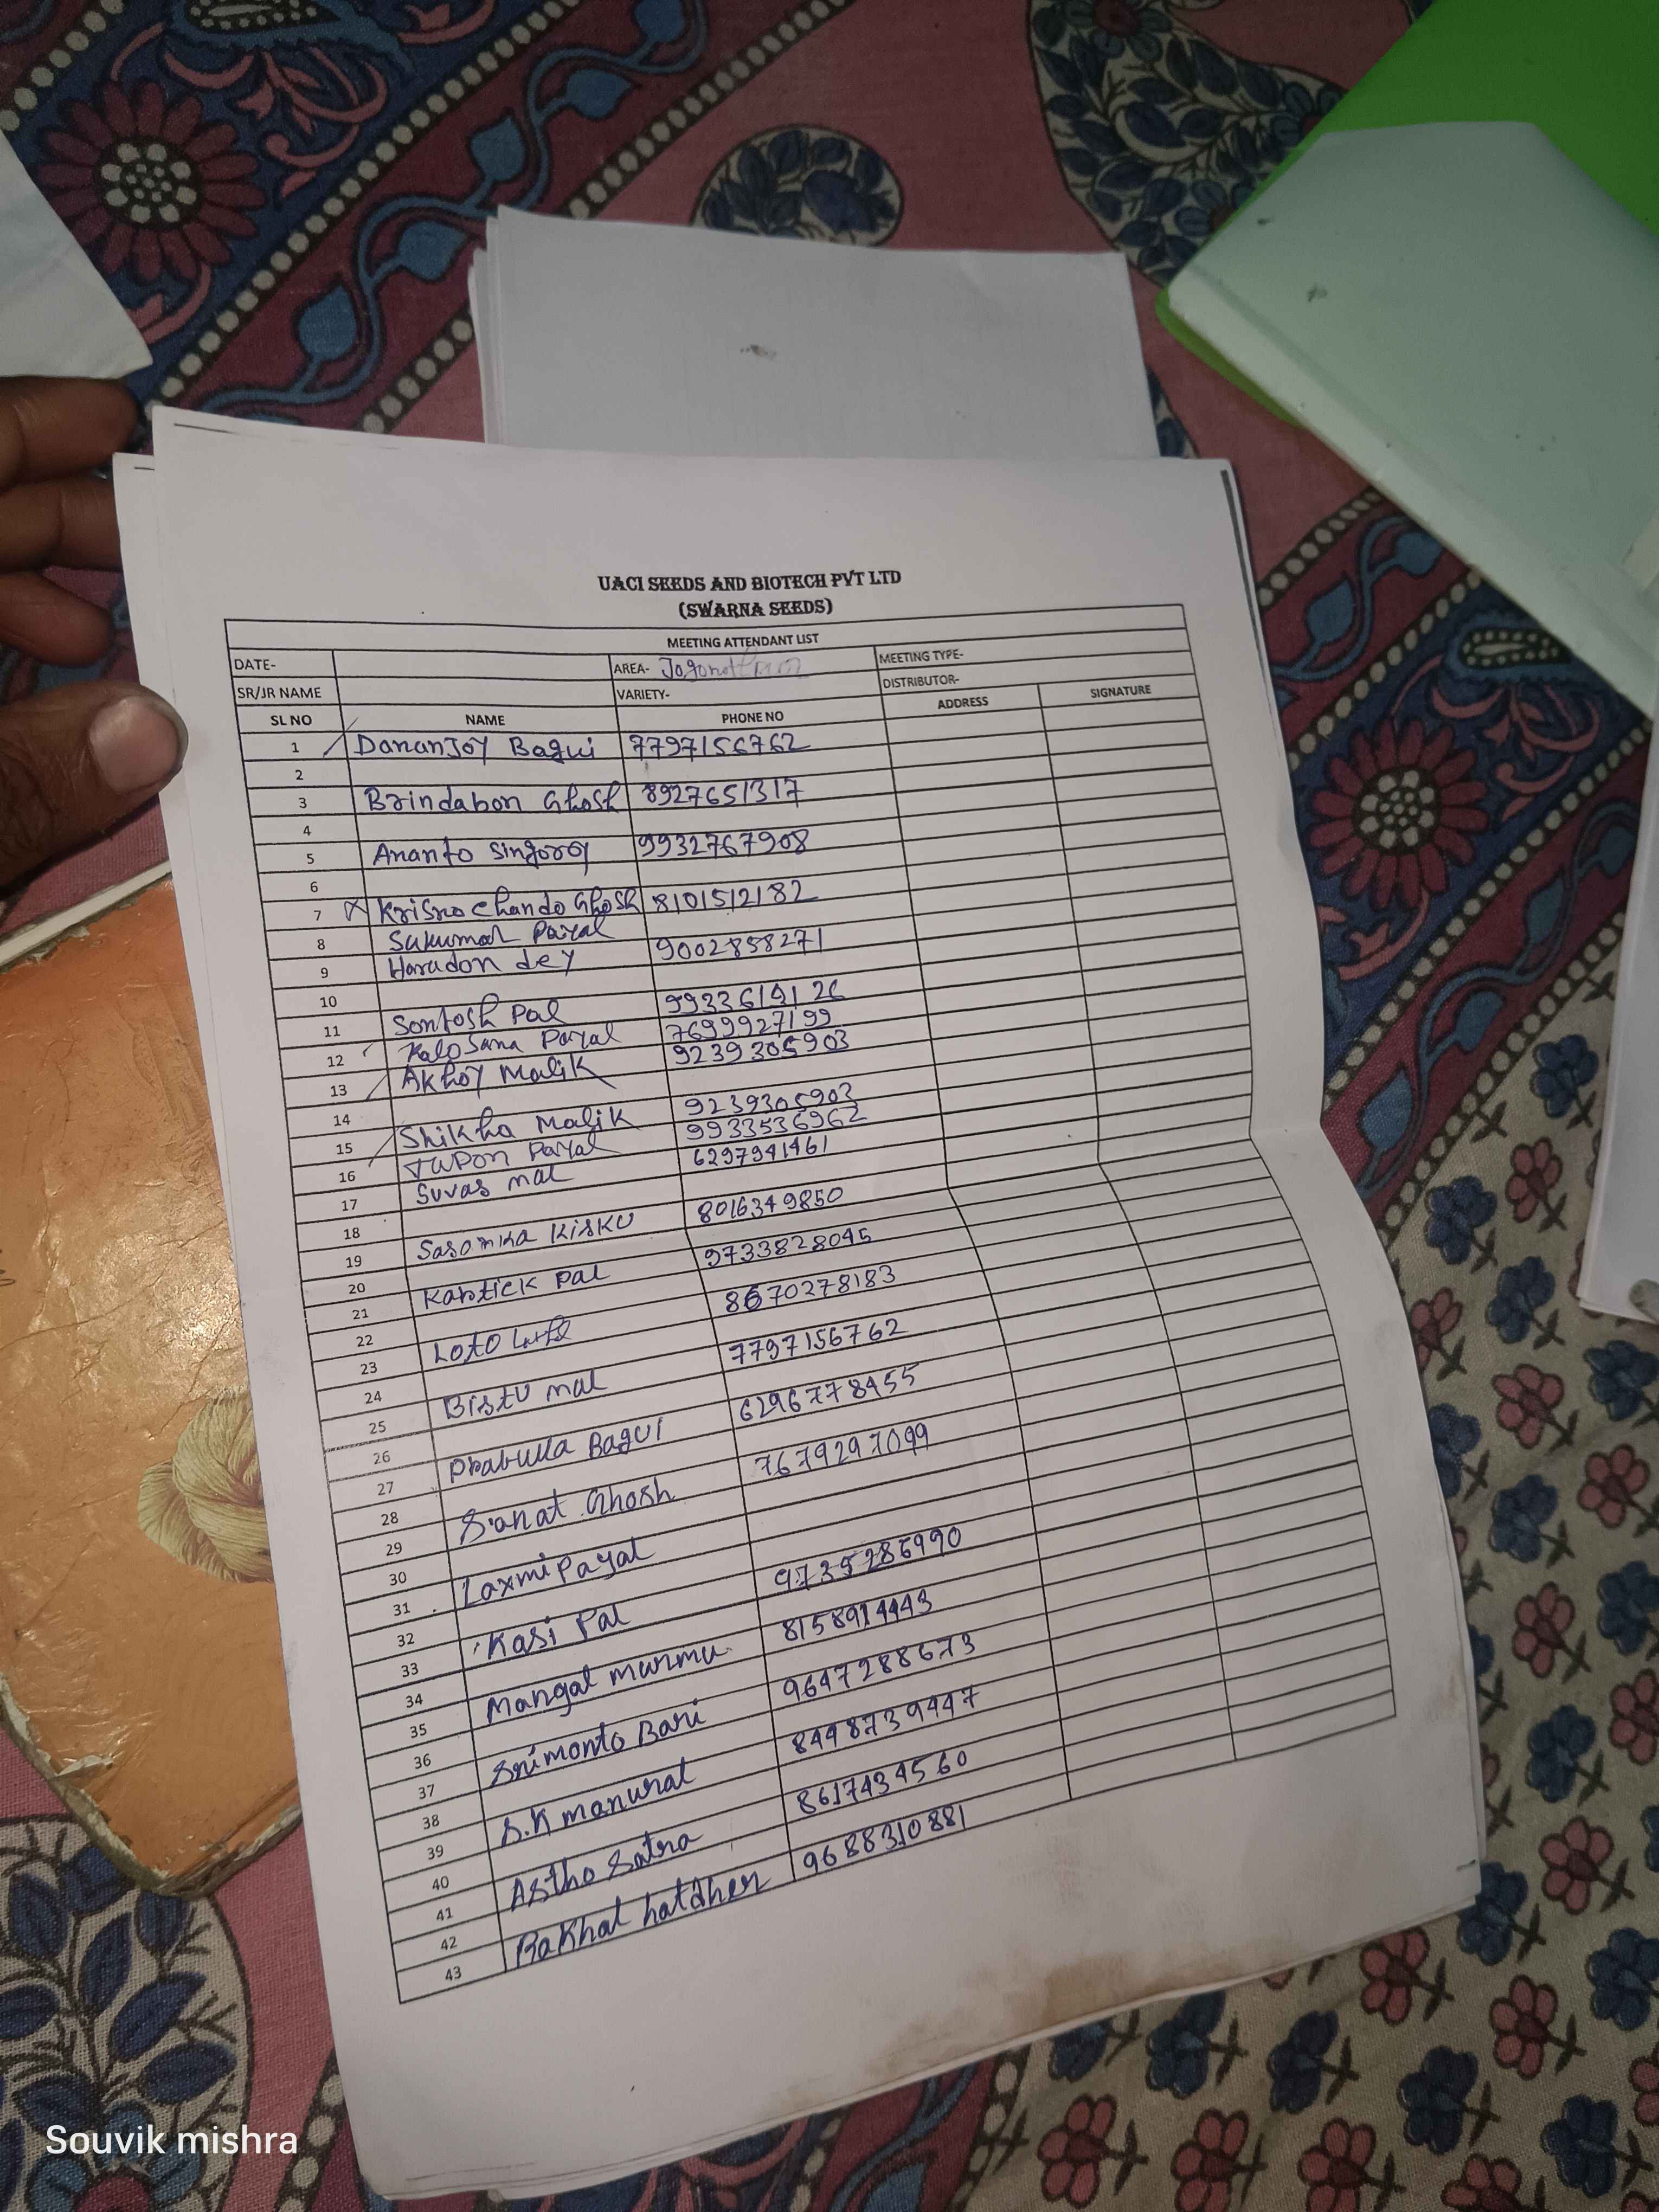 UACI SEEDS AND BIOTECH PVT LTD
(SWARNA SEEDS)
MEETING ATTENDANT LIST
DATE- AREA- MEETING TYPE-
SR/JR NAME VARIETY- DISTRIBUTOR-
SL NO NAME PHONE NO ADDRESS SIGNATURE
1 Dananjoy Bagui 7797156762
2
3 Brindabon Ghosh 8927651317
4
5 Ananto Singoroy 9932767908
6
7 Krisno Chando Ghosh 8101512182
8 Sukumar Payal
9 Haradon dey 9002858271
10
11 Sontosh Pal 9933619126
12 Kalosana Payal 7699927199
13 Akhoy Malik 9239305903
14
15 Shikha Malik 9239305903
16 Tupon Payal 9933536962
17 Suvas mal 6297941461
18
19 Sasonka Kisku 8016349850
20
21 Kartick Pal 9733828045
22
23 Loto 8670278183
24
25 Bistu mal 7797156762
26
27 Prabulla Bagui 6296778455
28
29 Sanat Ghosh 7679297099
30
31 Laxmi Payal
32
33 Kasi Pal 9735286990
34
35 Mangal murmu 8158914443
36
37 Srimonto Bari 9647288673
38
39 S.K manural 8448739447
40
41 Astho Satra 8617434560
42
43 Rakhal hatdher 9688310881
Souvik mishra